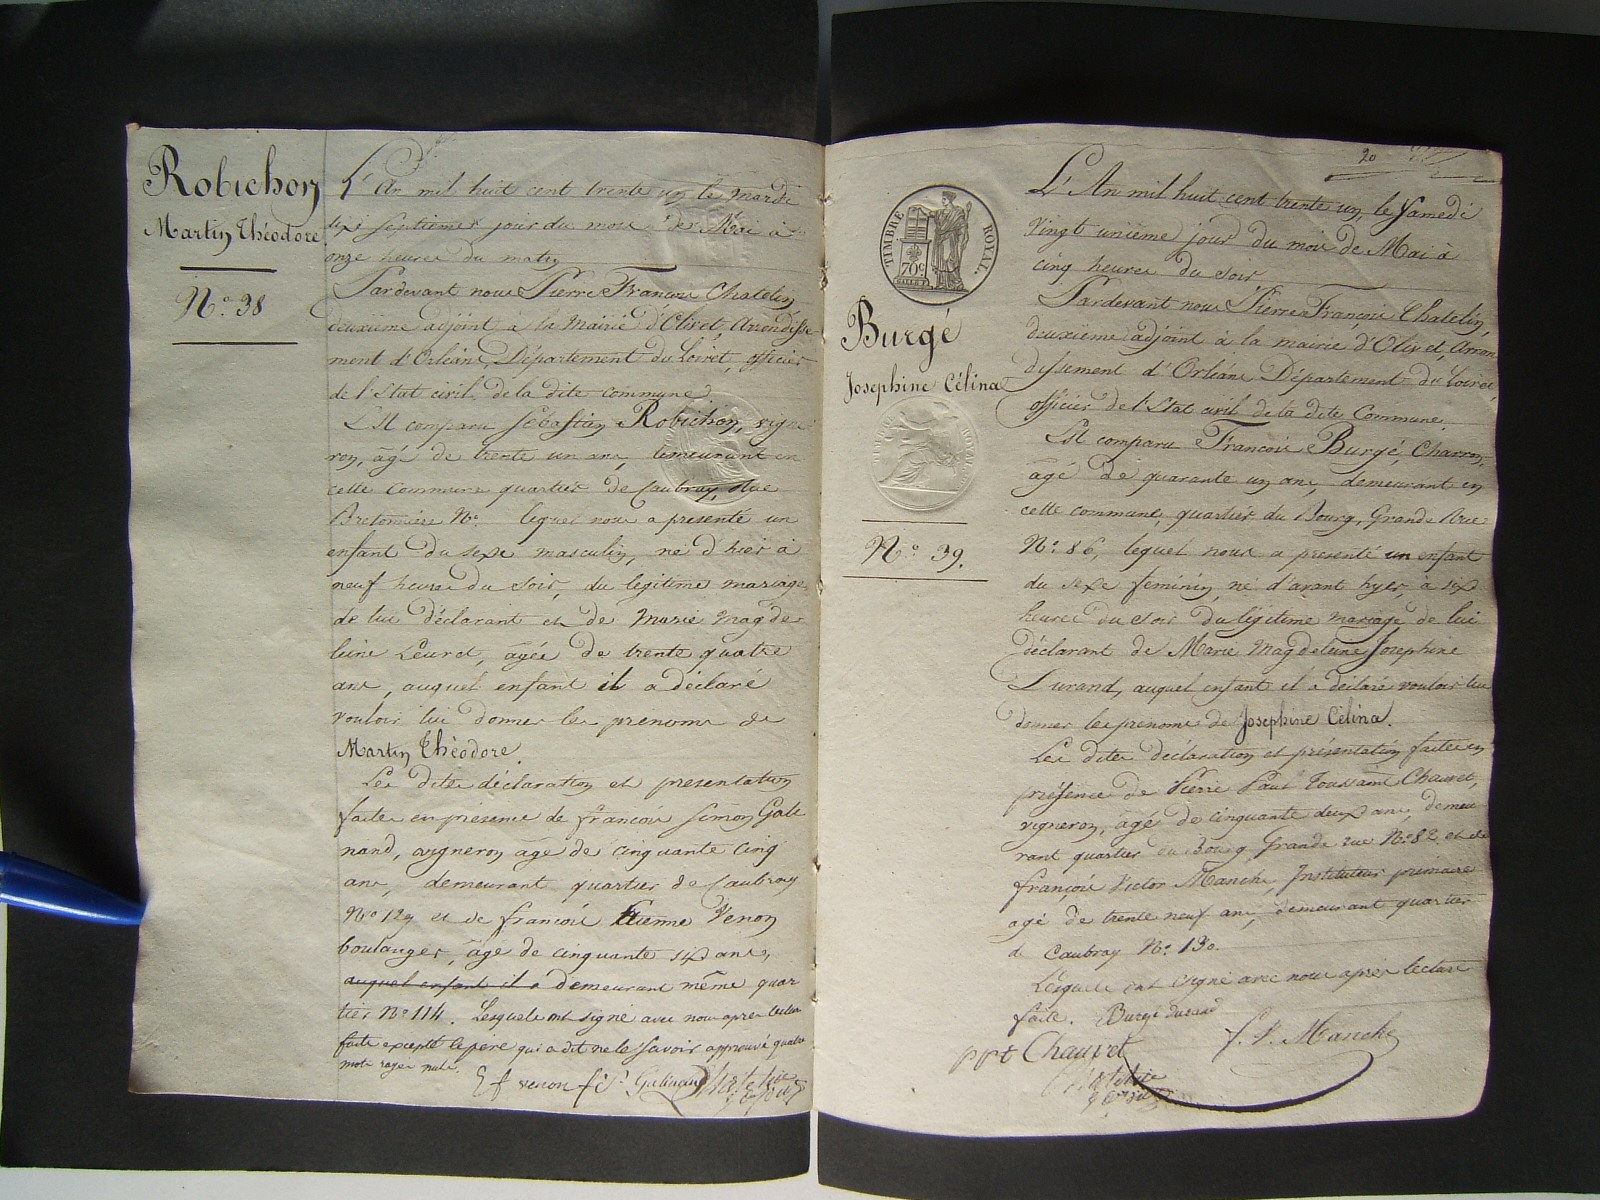 Robichon
Martin Théodore
N.° 38
L'An mil huit cent trente un le mardi
dixe septiemes jour du mois des Mai à
onze heures du matin
Pardevant nous Pierre François Chatelin
deuxième adjoint à la Mairié d'Olivet, Arrondisse-
ment d'Orléans, Département du Loiret, officier
de l'Etat civil de la dite commune
Est comparu Sébastien Robichon, vigne
ron, âgé de trente un ans, demeurant en
cette commune quartier de Caubray, Rue
Bretonnière N.° lequel nous a présenté un
enfant du sexe masculin, né d'hier à
neuf heures du soir, du légitime mariage
de lui déclarant et de Marie Magde
leine Leuret, agée de trente quatre
ans, auquel enfant il a déclaré
vouloir lui donner les prénoms de
Martin Théodore.
Les dites déclaration et présentation
faites en présence de françois Simon Gali
nand, vigneron âgé de cinquante cinq
ans, demeurant quartier de Caubray
N.° 129 et de françois Etienne Venon
boulanger, âgé de cinquante six ans,
auquel enfant il a demeurant même quar
tier N.° 114. Lesquels ont signé avec nous après lecture
faite excepté le père qui a dit ne le savoir approuvé quatre
mots rayés nuls.
E f venon f. s. Galinand Chatelin
20
TIMBRE ROYAL.
70c
Burgé
Josephine Célina
N.° 39.
L'An mil huit cent trente un, le Samedi
vingt unième jour du mois de Mai à
cinq heures du soir
Pardevant nous Pierre François Chatelin,
deuxième adjoint à la mairie d'Olivet, Arron
dissement d'Orléans, Département du Loiret,
officier de l'Etat civil de la dite Commune.
Est comparu François Burgé, Charron,
âgé de quarante un ans, demeurant en
cette commune, quartier du Bourg, Grande Rue
N.° 86, lequel nous a présenté un enfant
du sexe feminin, né d'avant hyer, à six
heures du soir du légitime mariage de lui
déclarant de Marie Magdeleine Josephine
Durand, auquel enfant il a déclaré vouloir lui
donner les prénoms de Josephine Célina.
Les dites déclaration et présentation faites en
présence de Pierre Paul Toussaint Chauvet,
vigneron, âgé de cinquante deux ans, demeu
rant quartier du Bourg, Grande rue N.° 82 et de
françois Victor Manche, Instituteur primaire
agé de trente neuf ans, demeurant quartier
de Caubray N.° 130.
Lesquels ont signé avec nous après lecture
faite. Burgé durand
ppt Chauvet F. V. Manche
Chatelin